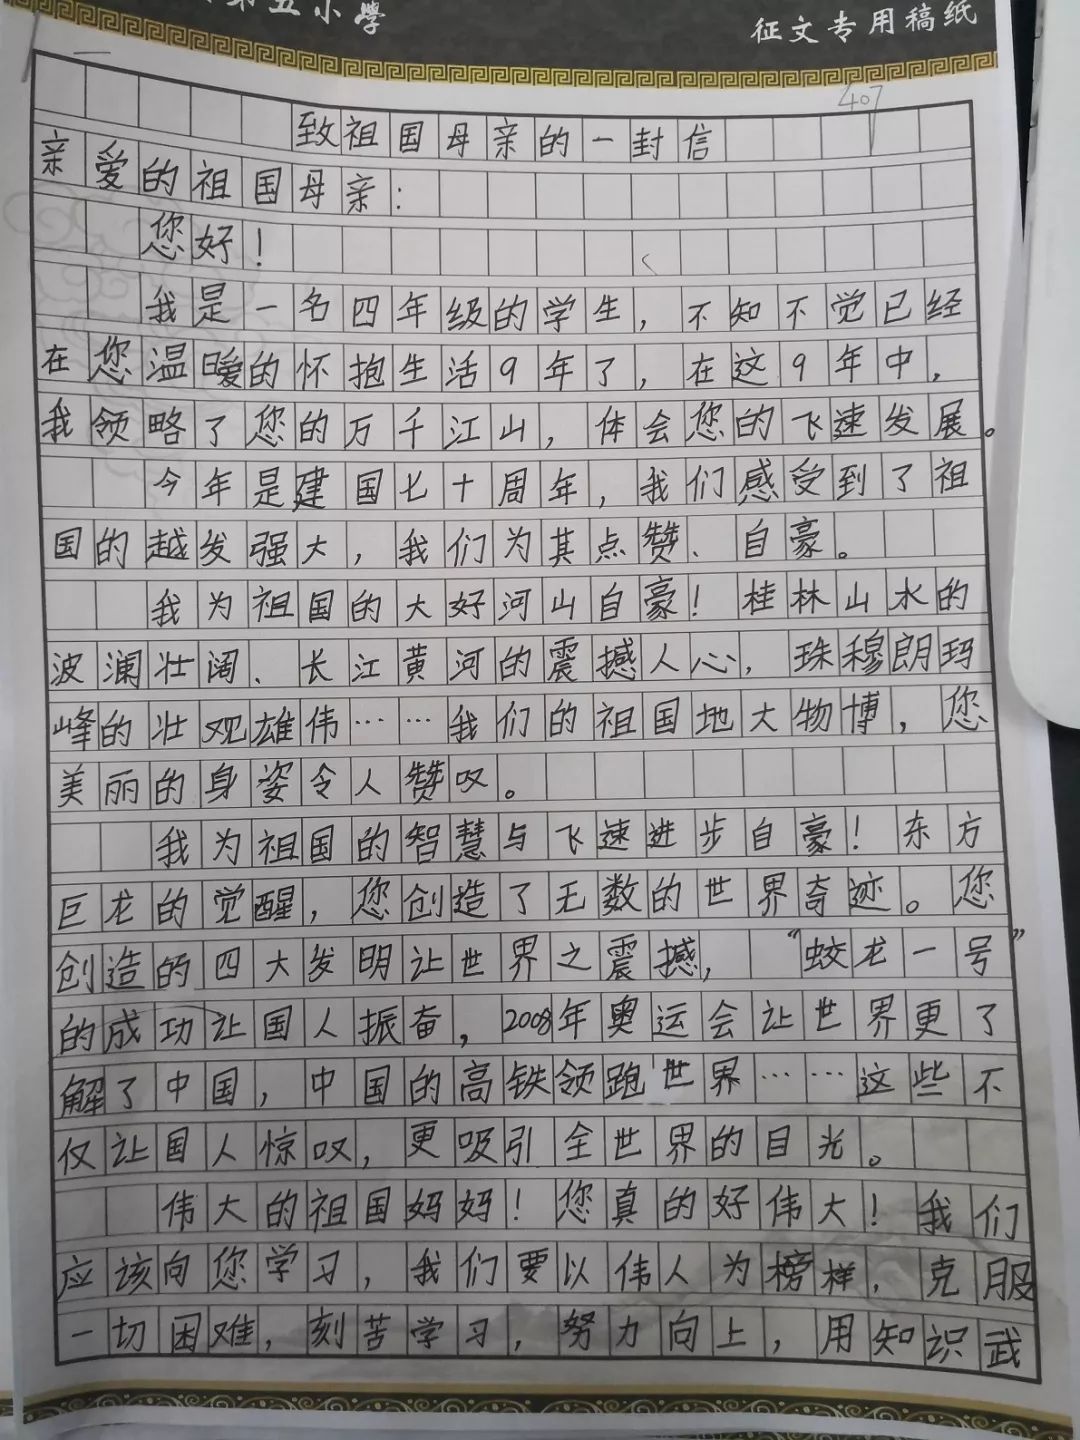 第五小學
征文专用稿纸
407
致祖国母亲的一封信
亲爱的祖国母亲：
您好！
我是一名四年级的学生，不知不觉已经
在您温暖的怀抱生活9年了，在这9年中，
我领略了您的万千江山，体会您的飞速发展。
今年是建国七十周年，我们感受到了祖
国的越发强大，我们为其点赞、自豪。
我为祖国的大好河山自豪！桂林山水的
波澜壮阔、长江黄河的震撼人心，珠穆朗玛
峰的壮观雄伟……我们的祖国地大物博，您
美丽的身姿令人赞叹。
我为祖国的智慧与飞速进步自豪！东方
巨龙的觉醒，您创造了无数的世界奇迹。您
创造的四大发明让世界之震撼，“蛟龙一号”
的成功让国人振奋，2008年奥运会让世界更了
解了中国，中国的高铁领跑世界……这些不
仅让国人惊叹，更吸引全世界的目光。
伟大的祖国妈妈！您真的好伟大！我们
应该向您学习，我们要以伟人为榜样，克服
一切困难，刻苦学习，努力向上，用知识武